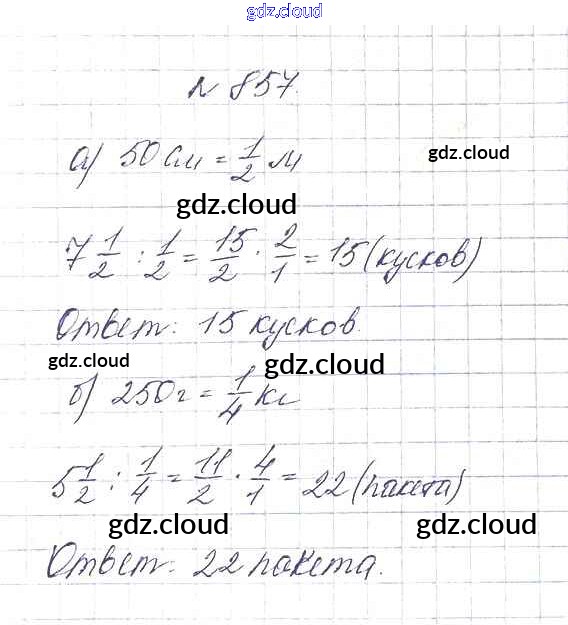 gdz.cloud
№ 857.
а) 50 см = 1/2 м
gdz.cloud
gdz.cloud
7 1/2 : 1/2 = 15/2 · 2/1 = 15 (кусков)
Ответ: 15 кусков.
gdz.cloud
gdz.cloud
б) 250 г = 1/4 кг
5 1/2 : 1/4 = 11/2 · 4/1 = 22 (пакета)
gdz.cloud
gdz.cloud
Ответ: 22 пакета.